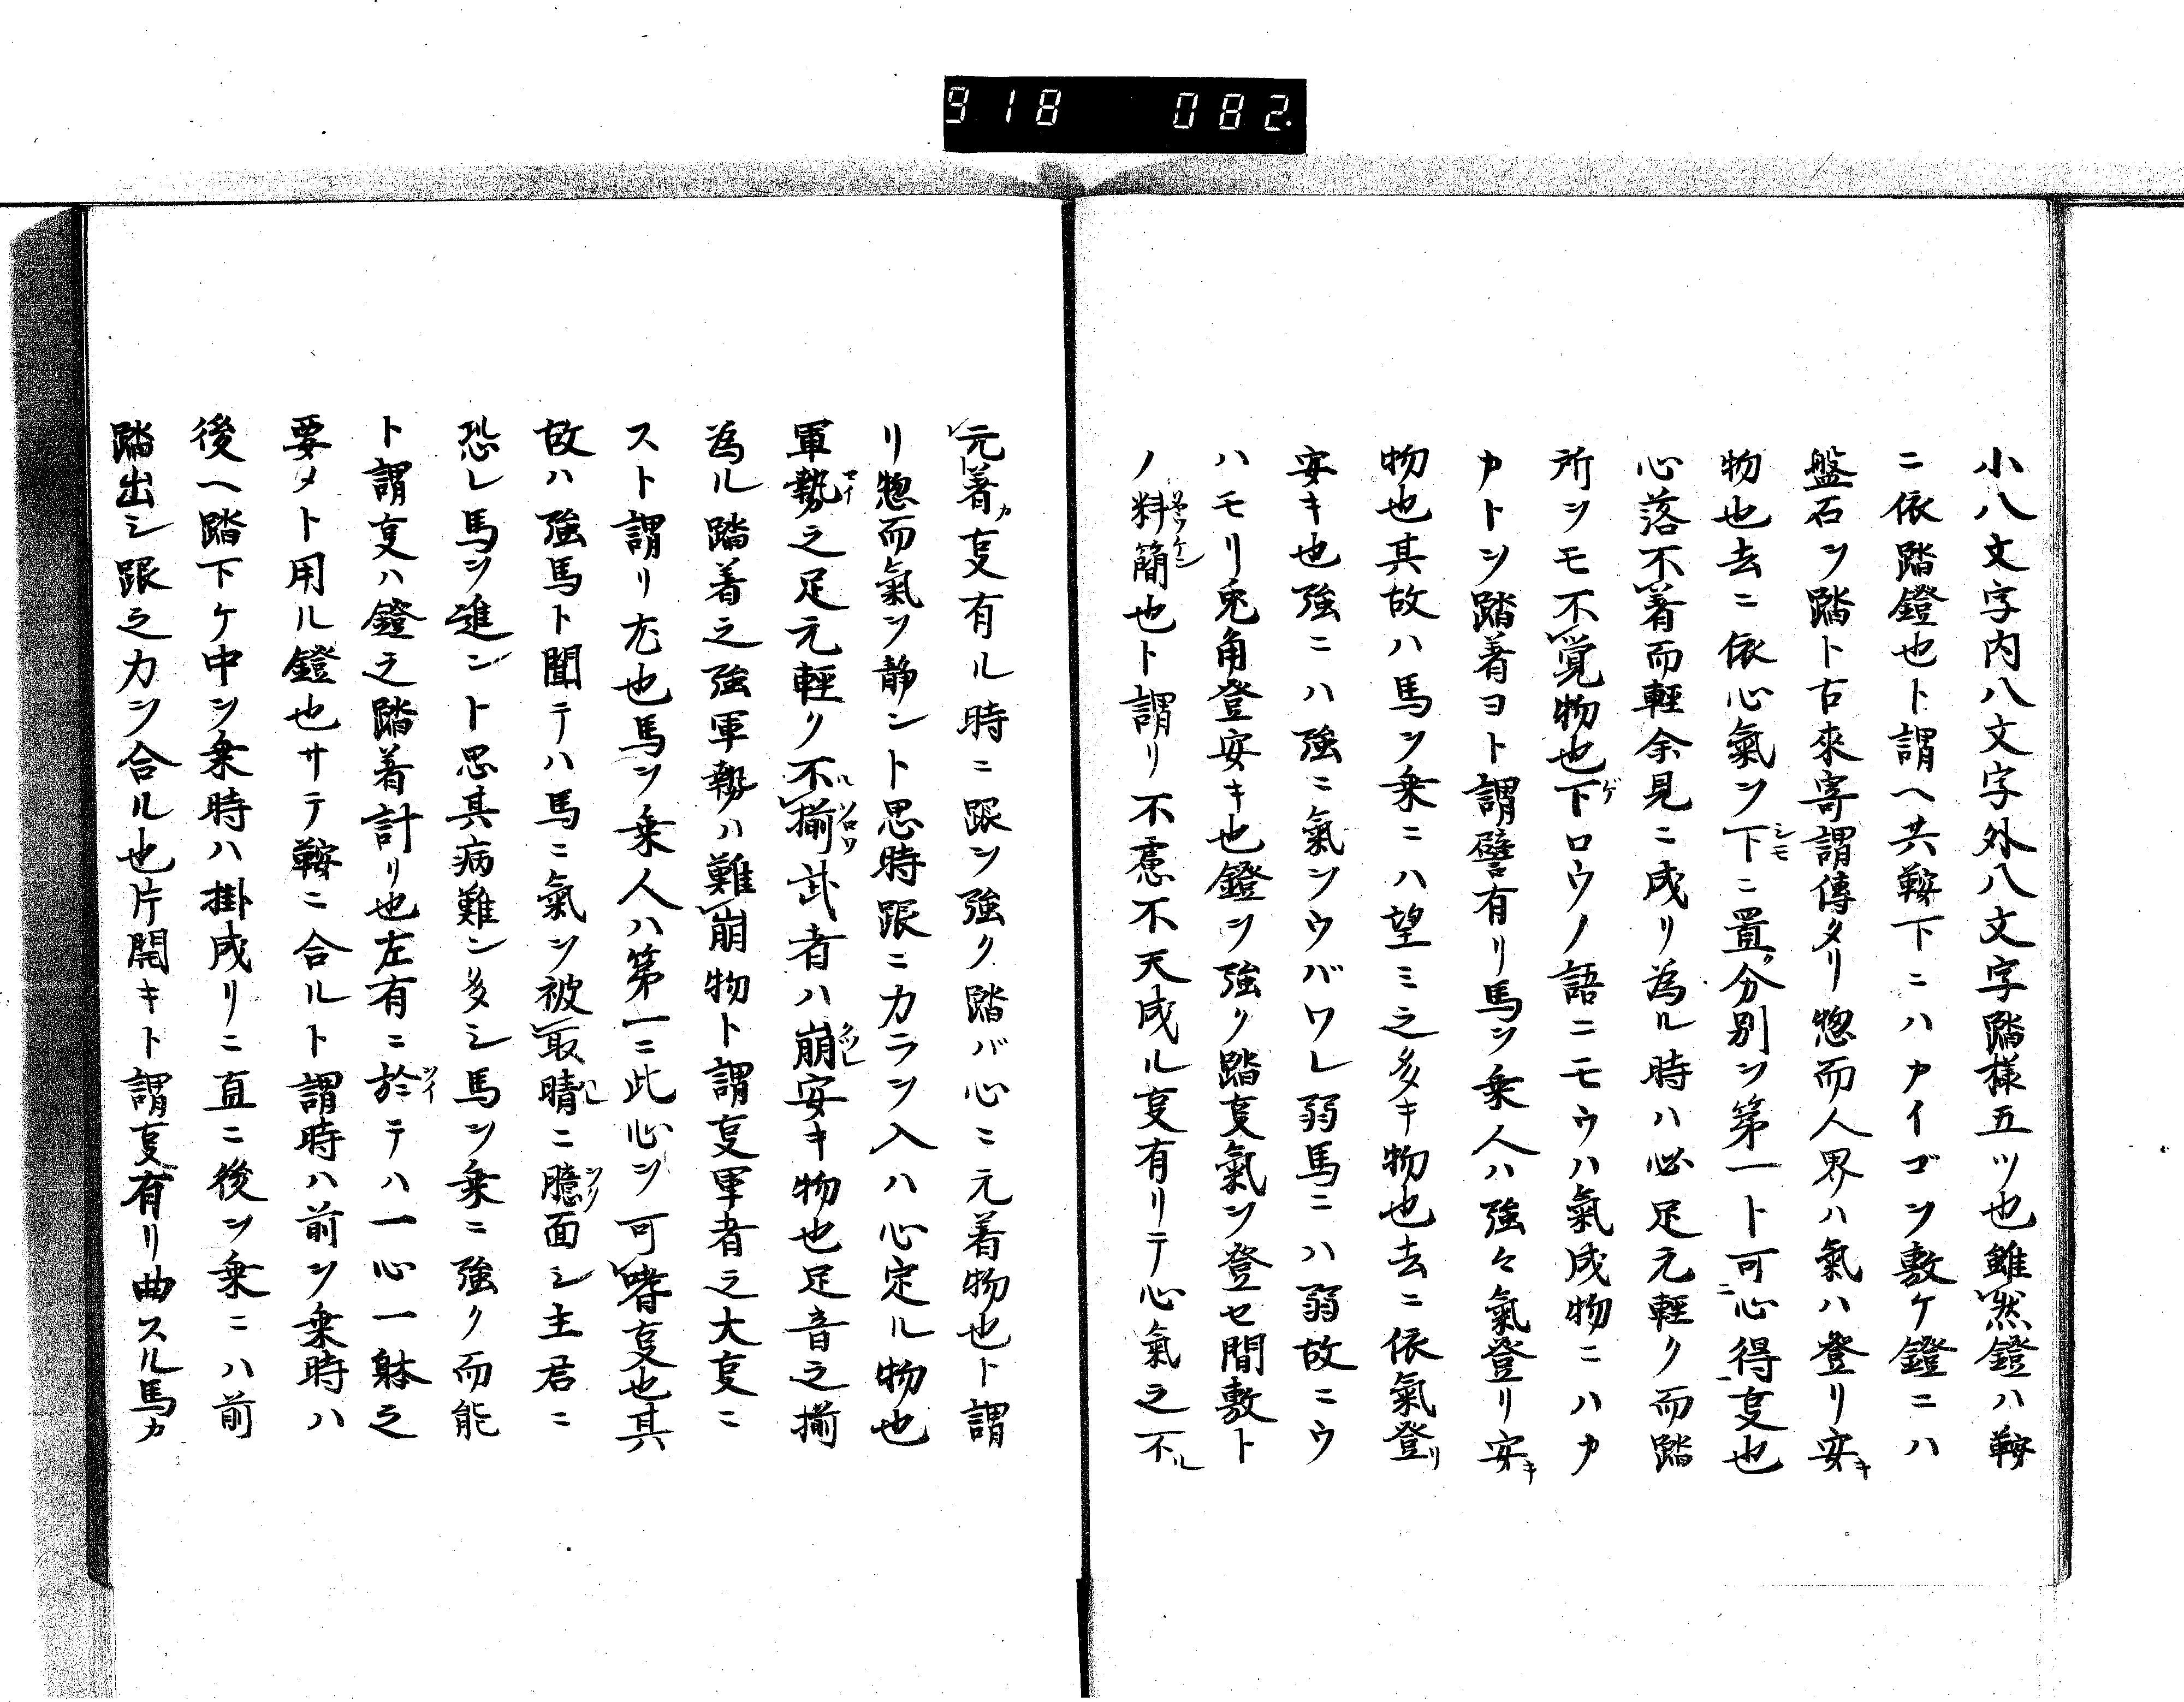 918 082.
小八文字内八文字外八文字踏様五ツ也雖然鐙ハ鞍
ニ依踏鐙也ト謂ヘ共鞍下ニハカイゴヲ敷ケ鐙ニハ
盤石ヲ踏ト古來寄謂傳タリ惣而人界ハ氣ハ登リ安キ
物也去ニ依心氣ヲ下ニ置分別ヲ第一ト可心得㕝也
心落不着而輕余見ニ成リ為ル時ハ必足元輕ク而踏
所ヲモ不覚物也下ロウノ語ニモウハ氣成物ニハカ
カトヲ踏着ヨト謂譬有リ馬ヲ乗人ハ強々氣登リ安キ
物也其故ハ馬ヲ乗ニハ望ミ之多キ物也去ニ依氣登リ
安キ也強ニハ強ニ氣ヲウバワレ弱馬ニハ弱故ニウ
ハモリ兎角登安キ也鐙ヲ強ク踏㕝氣ヲ登セ間敷ト
ノ料簡也ト謂リ不慮不天成ル㕝有リテ心氣之不ル
元着㕝有ル時ニ跟ヲ強ク踏バ心ニ元着物也ト謂
リ惣而氣ヲ静ント思時跟ニカラヲ入ハ心定ル物也
軍勢之足元輕ク不揃武者ハ崩安キ物也足音之揃
為ル踏着之強軍勢ハ難崩物ト謂㕝軍者之大㕝ニ
スト謂リ尤也馬ヲ乗人ハ第一ニ此心ヲ可嗜㕝也其
故ハ強馬ト聞テハ馬ニ氣ヲ被取晴ニ臆面シ主君ニ
恐レ馬ヲ進ント思其病難ヲ多シ馬ヲ乗ニ強ク而能
ト謂㕝ハ鐙之踏着計リ也左有ニ於テハ一心一躰之
要メト用ル鐙也サテ鞍ニ合ルト謂時ハ前ヲ乗時ハ
後ヘ踏下ケ中ヲ乗時ハ掛成リニ直ニ後ヲ乗ニハ前
踏出シ跟之力ヲ合ル也片開キト謂㕝有リ曲スル馬カ